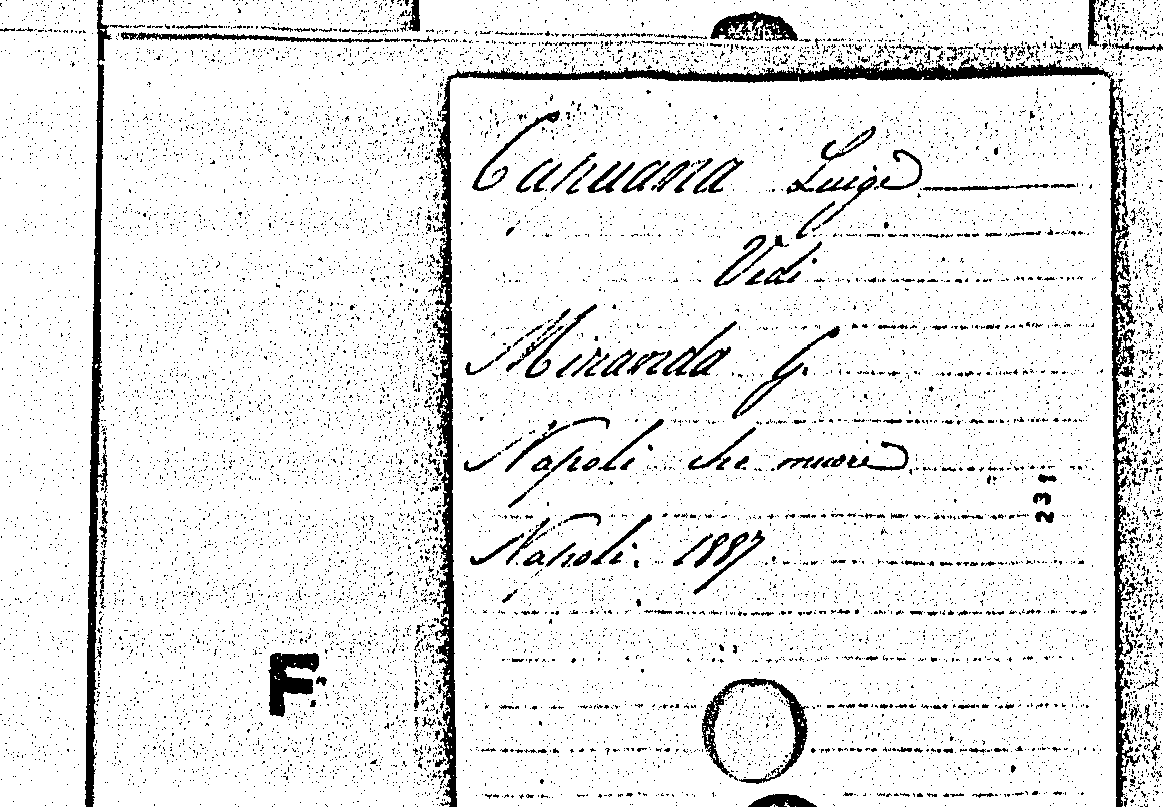 Capuana Luigi
Vedi
Miranda G.
Napoli che muore
Napoli. 1887.
231
F